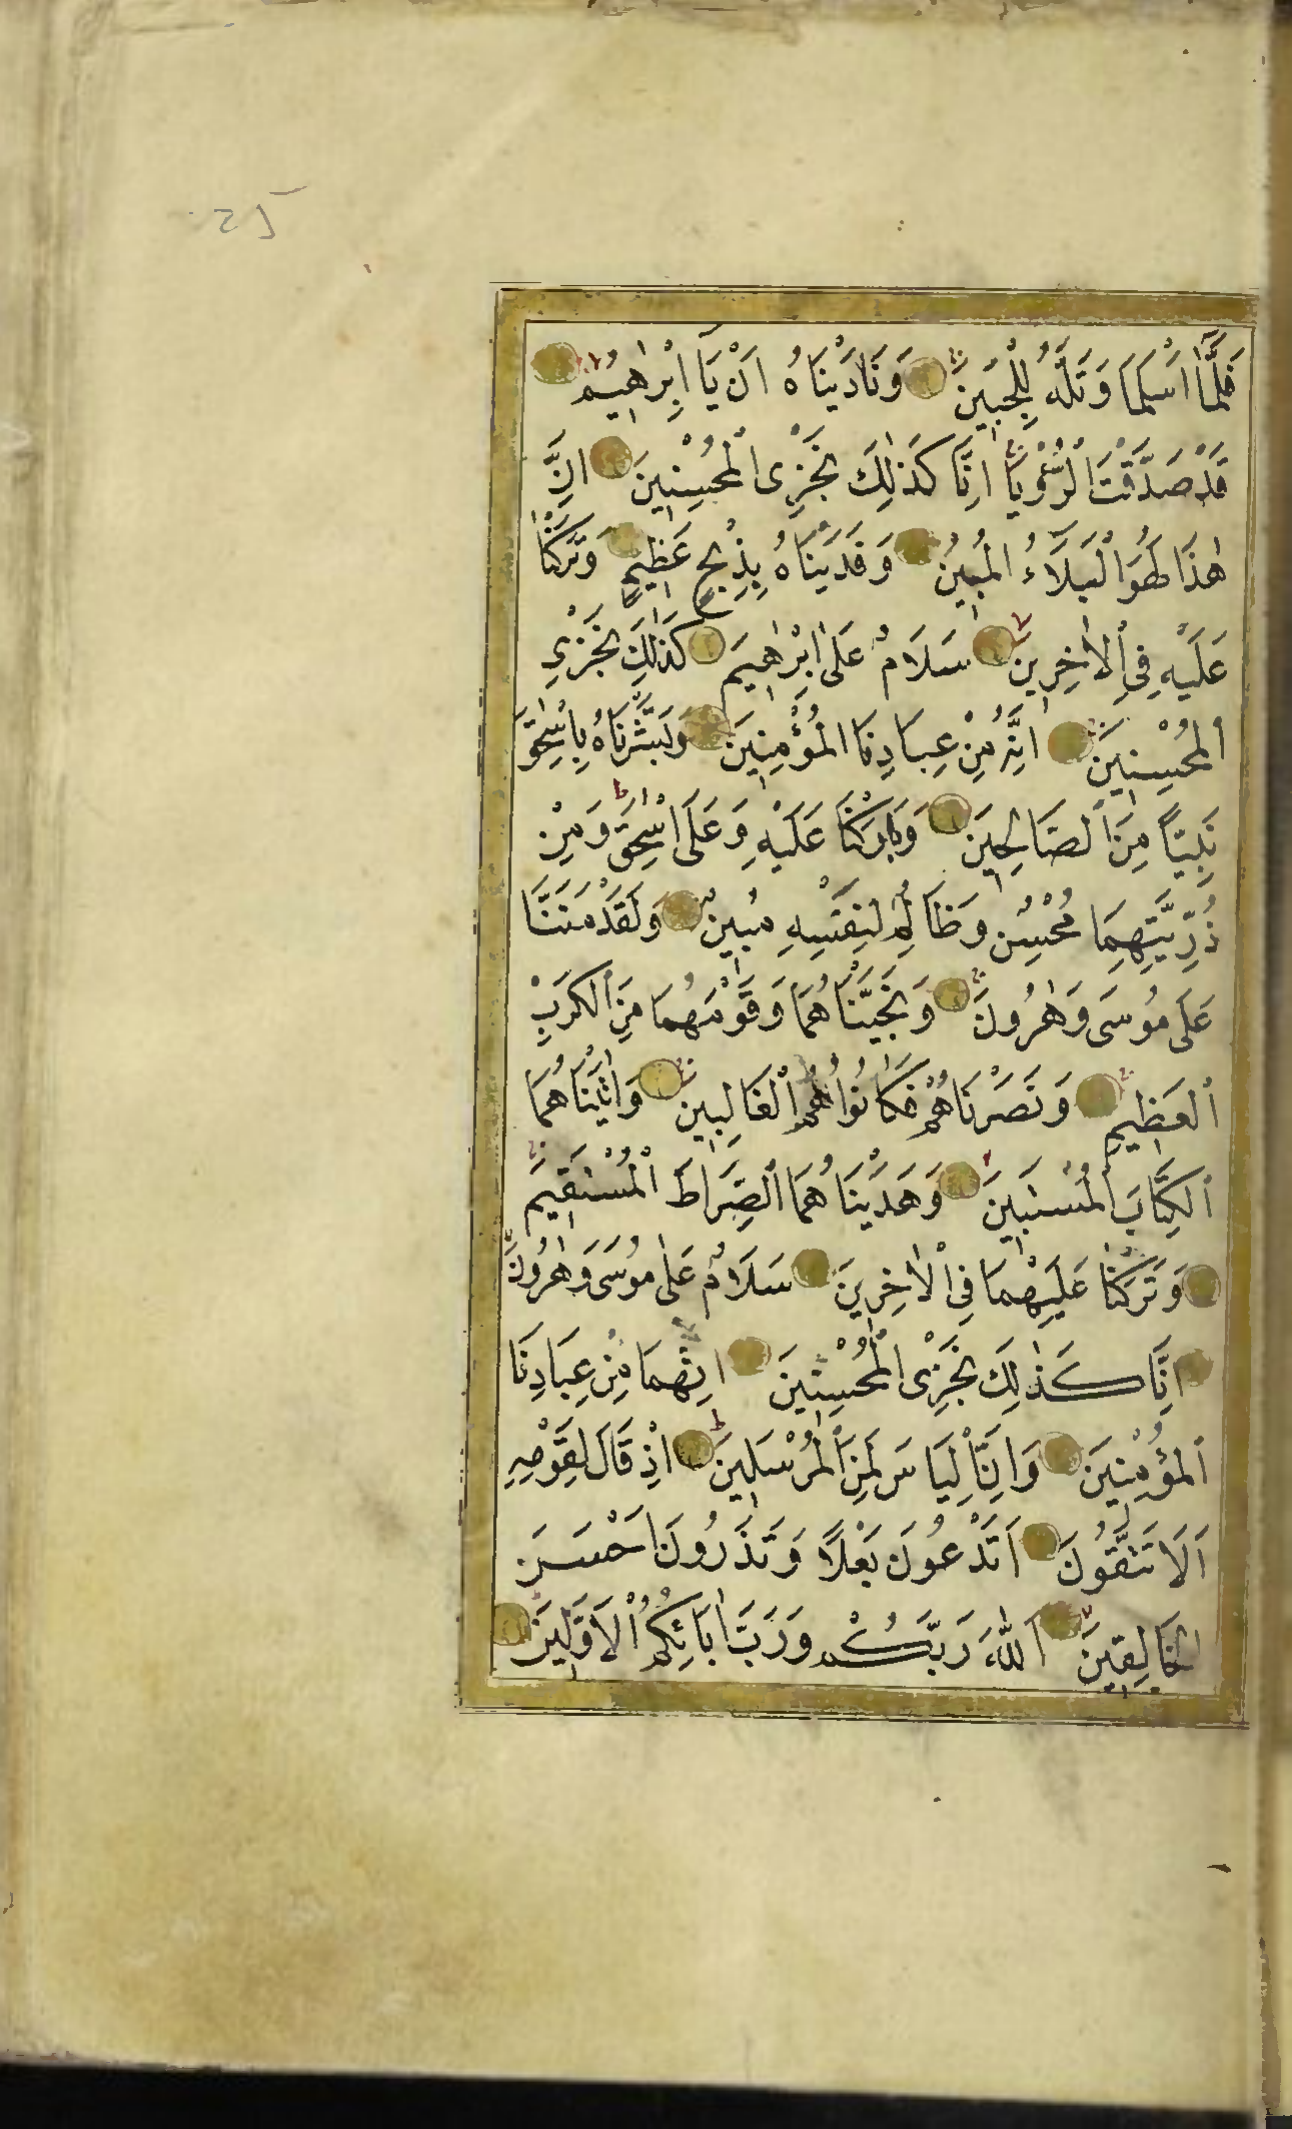 فَلَمَّا اَسْلَمَا وَتَلَّهُ لِلْجَبِينِ وَنَادَيْنَاهُ اَنْ يَا اِبْرٰهِيمُ
قَدْ صَدَّقْتَ الرُّءْوٰيَا اِنَّا كَذٰلِكَ نَجْزِى الْمُحْسِنِينَ اِنَّ
هٰذَا لَهُوَ الْبَلَاءُ الْمُبِينُ وَفَدَيْنَاهُ بِذِبْحٍ عَظِيمٍ وَتَرَكْنَا
عَلَيْهِ فِى الْاٰخِرِينَ سَلَامٌ عَلٰى اِبْرٰهِيمَ كَذٰلِكَ نَجْزِى
الْمُحْسِنِينَ اِنَّهُ مِنْ عِبَادِنَا الْمُؤْمِنِينَ وَبَشَّرْنَاهُ بِاِسْحٰقَ
نَبِيًّا مِنَ الصَّالِحِينَ وَبَارَكْنَا عَلَيْهِ وَعَلٰى اِسْحٰقَ وَمِنْ
ذُرِّيَّتِهِمَا مُحْسِنٌ وَظَالِمٌ لِنَفْسِهِ مُبِينٌ وَلَقَدْ مَنَنَّا
عَلٰى مُوسٰى وَهٰرُونَ وَنَجَّيْنَاهُمَا وَقَوْمَهُمَا مِنَ الْكَرْبِ
الْعَظِيمِ وَنَصَرْنَاهُمْ فَكَانُوا هُمُ الْغَالِبِينَ وَاٰتَيْنَاهُمَا
الْكِتَابَ الْمُسْتَبِينَ وَهَدَيْنَاهُمَا الصِّرَاطَ الْمُسْتَقِيمَ
وَتَرَكْنَا عَلَيْهِمَا فِى الْاٰخِرِينَ سَلَامٌ عَلٰى مُوسٰى وَهٰرُونَ
اِنَّا كَذٰلِكَ نَجْزِى الْمُحْسِنِينَ اِنَّهُمَا مِنْ عِبَادِنَا
الْمُؤْمِنِينَ وَاِنَّ اِلْيَاسَ لَمِنَ الْمُرْسَلِينَ اِذْ قَالَ لِقَوْمِهِ
اَلَا تَتَّقُونَ اَتَدْعُونَ بَعْلًا وَتَذَرُونَ اَحْسَنَ
الْخَالِقِينَ اَللّٰهَ رَبَّكُمْ وَرَبَّ اٰبَائِكُمُ الْاَوَّلِينَ